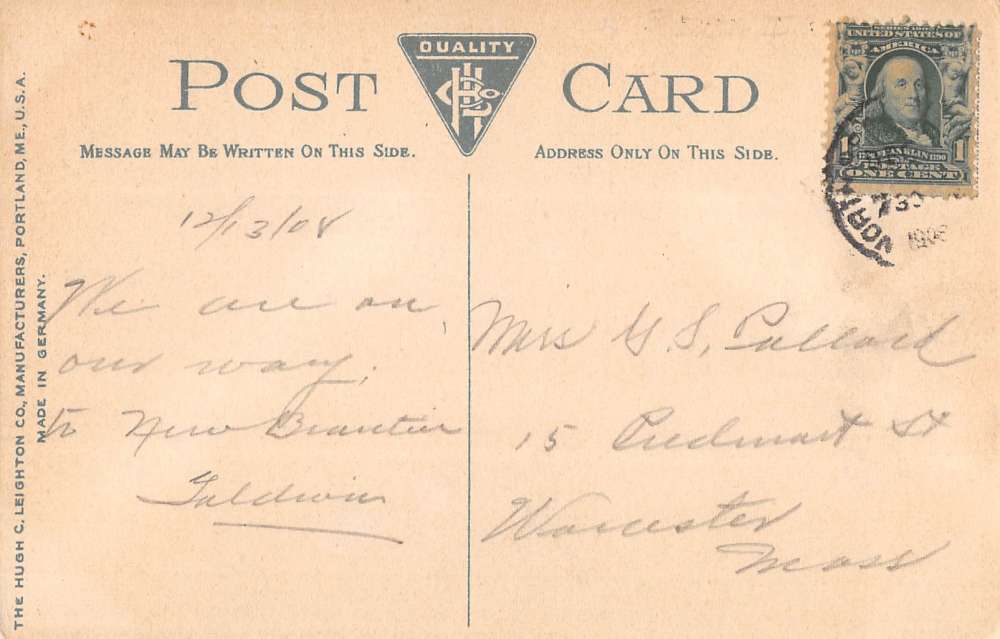 QUALITY
POST CARD
MESSAGE MAY BE WRITTEN ON THIS SIDE.
ADDRESS ONLY ON THIS SIDE.
THE HUGH C. LEIGHTON CO., MANUFACTURERS, PORTLAND, ME., U.S.A.
MADE IN GERMANY.
SERIES 1902
UNITED STATES OF
AMERICA
FRANKLIN 1790
1 1
POSTAGE
ONE CENT
NORTH
730
1908
12/13/08
We are on
our way.
to New
Miss G. S. Pollard
15 St
Worcester
Mass